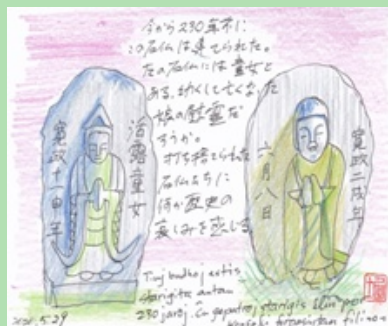 今から230年前に
この石仏は建てられた。
左の石仏には童女と
ある。幼くして亡くなった
娘の慰霊だ
ろうか。
打ち捨てられた
石仏たちに
何か歴史の
哀しみを感じる
寛政十一申年
童女
寛政二戌年
六月八日
Tiuj budhoj estis
starigitaj antaŭ
230 jaroj. Ĉu gepatroj starigis
filinon
5.29